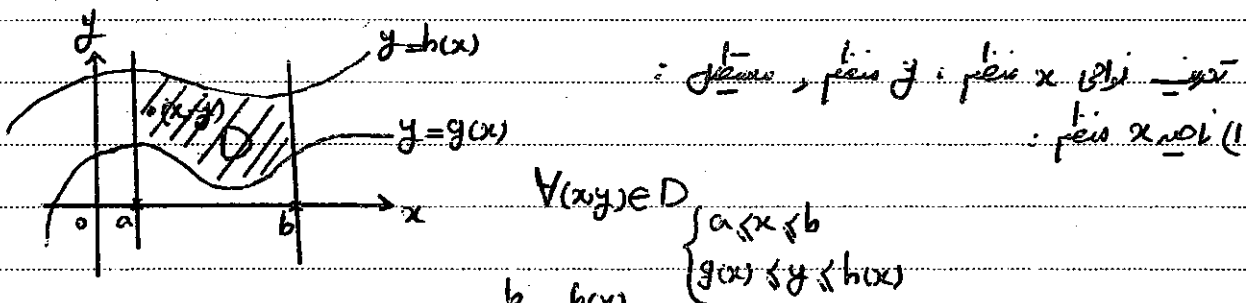 y
y=h(x)
(x,y)
D
y=g(x)
x
o a b
نواحی x منظم ، y منظم ، منظم :
1) ناحیه x منظم :
∀(x,y)∈D
{ a≤x≤b
g(x)≤y≤h(x)
b h(x)